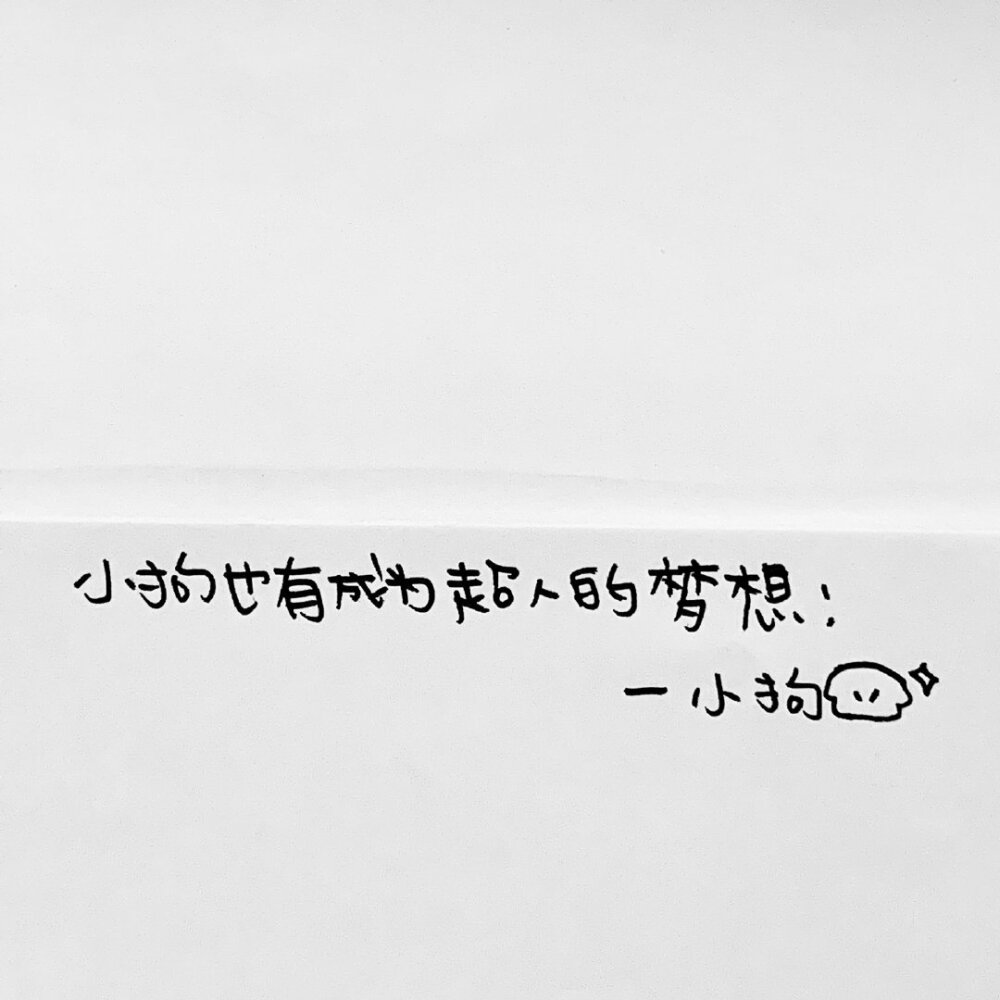 小狗也有成为超人的梦想!
一小狗